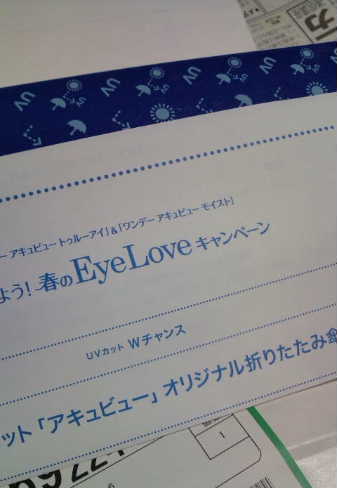 UV UV UV UV UV
ー アキュビュー トゥルーアイ」&「ワンデー アキュビュー モイスト」
よう! 春のEyeLoveキャンペーン
UVカット Wチャンス
ット「アキュビュー」オリジナル折りたたみ傘
1